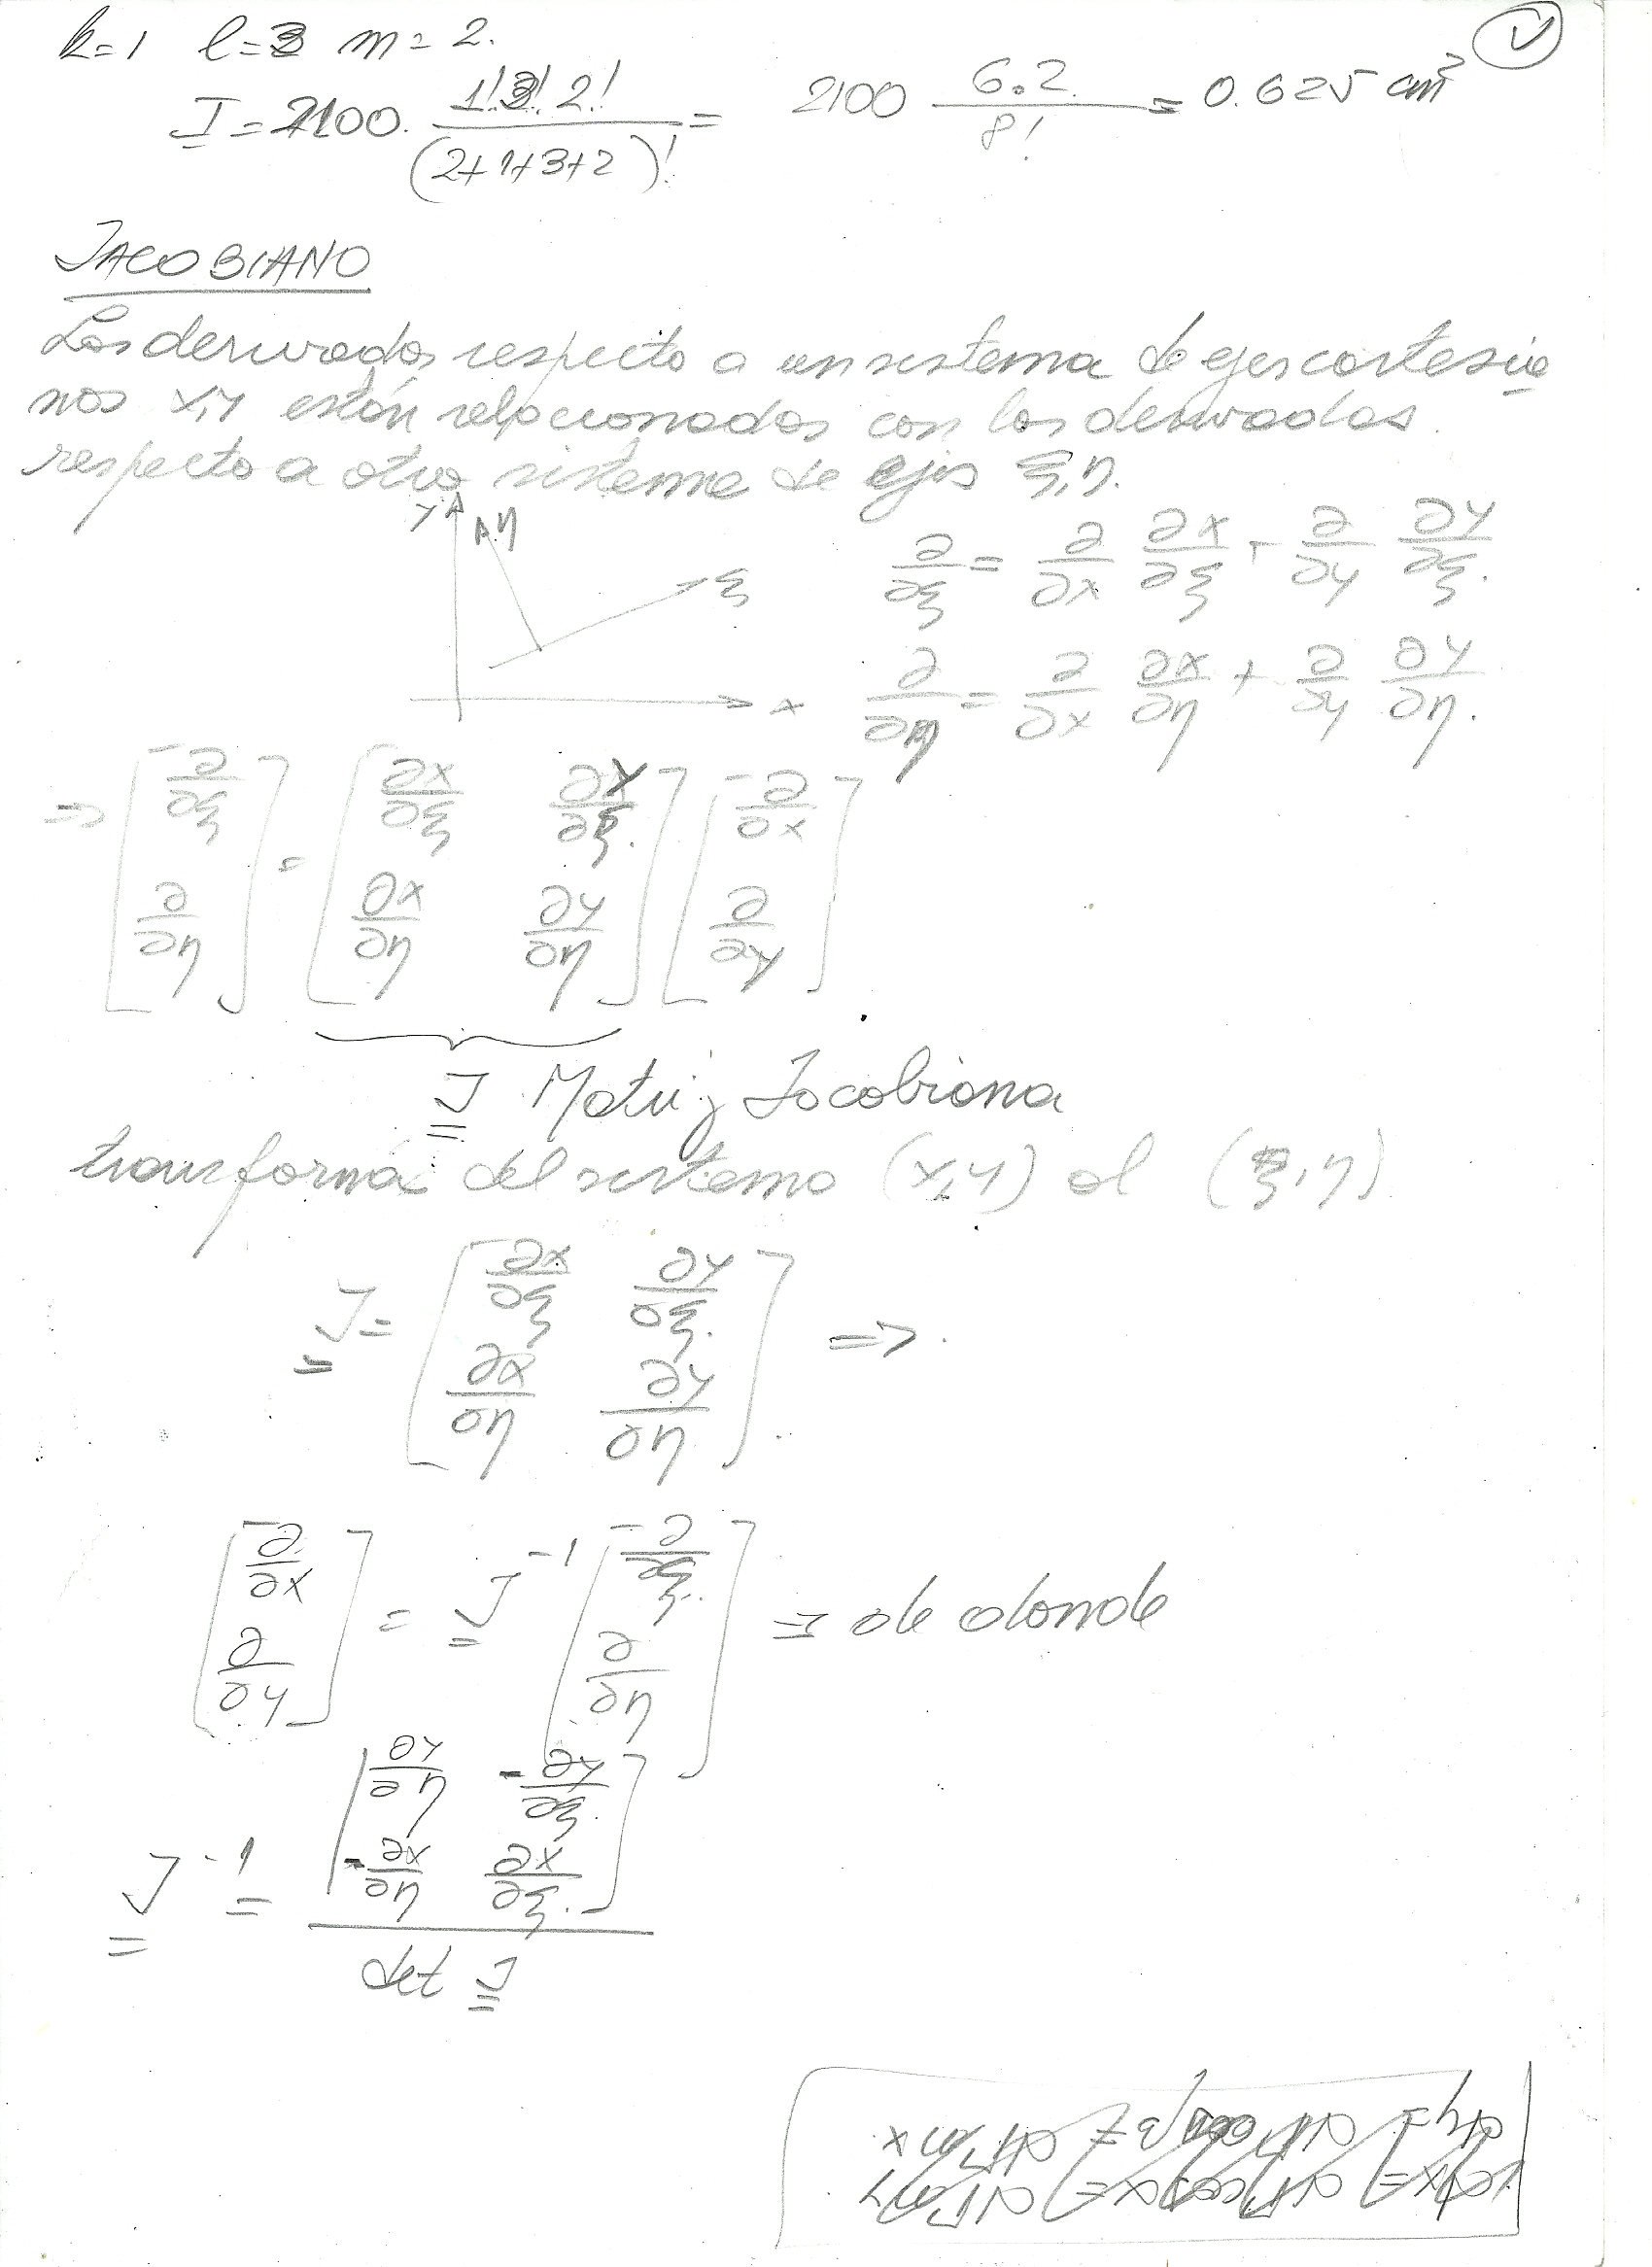 k=1 l=3 m=2.
V
I = 2100. 1! 3! 2! / (2+1+3+2)! = 2100 6.2 / 8! = 0.625 cm²
JACOBIANO
Las derivadas respecto a un sistema de ejes cartesia
nos x,y están relacionados con las derivadas
respecto a otro sistema de ejes ξ,η.
y η ξ x
∂/∂ξ = ∂/∂x ∂x/∂ξ + ∂/∂y ∂y/∂ξ.
∂/∂η = ∂/∂x ∂x/∂η + ∂/∂y ∂y/∂η.
=> [∂/∂ξ ; ∂/∂η] = [∂x/∂ξ ∂y/∂ξ. ; ∂x/∂η ∂y/∂η] [∂/∂x ; ∂/∂y]
J Matriz Jacobiana
transforma del sistema (x,y) al (ξ,η)
J = [∂x/∂ξ ∂y/∂ξ. ; ∂x/∂η ∂y/∂η] =>
[∂/∂x ; ∂/∂y] = J⁻¹ [∂/∂ξ. ; ∂/∂η] => de donde
J⁻¹ = [∂y/∂η -∂y/∂ξ. ; -∂x/∂η ∂x/∂ξ.] / det J